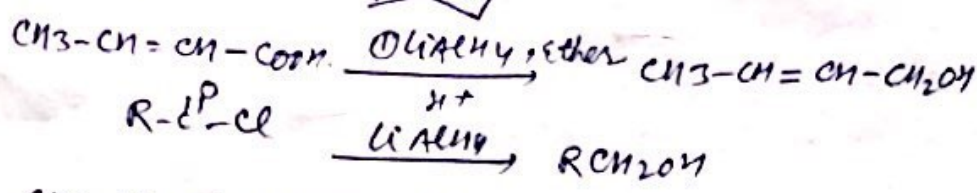 CH3-CH=CH-COOH ① LiAlH4, Ether CH3-CH=CH-CH2OH
H+
R-C-Cl LiAlH4 RCH2OH
O